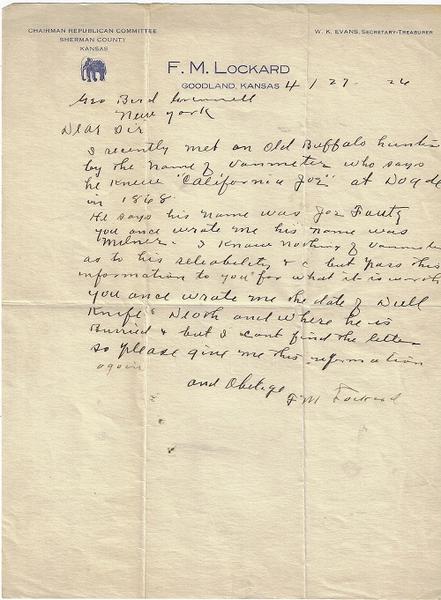 CHAIRMAN REPUBLICAN COMMITTEE
SHERMAN COUNTY
KANSAS
W. K. EVANS, SECRETARY-TREASURER
F. M. LOCKARD
GOODLAND, KANSAS 4/27-26
Geo Bird Grinnell
New York
Dear Sir
I recently met an Old Buffalo hunter
by the name of Vanmeter who says
he knew "California Joe" at Dodge
in 1868
He says his name was Joe Fauts
you once wrote me his name was
Milner. I know nothing of Vanmeter
as to his reliability & c but pass this
information to you for what it is worth
you once wrote me the date of Dull
Knife's Death and where he is
Buried & but I cant find the letter
so please give me this information
again
and Oblige
F M Lockard